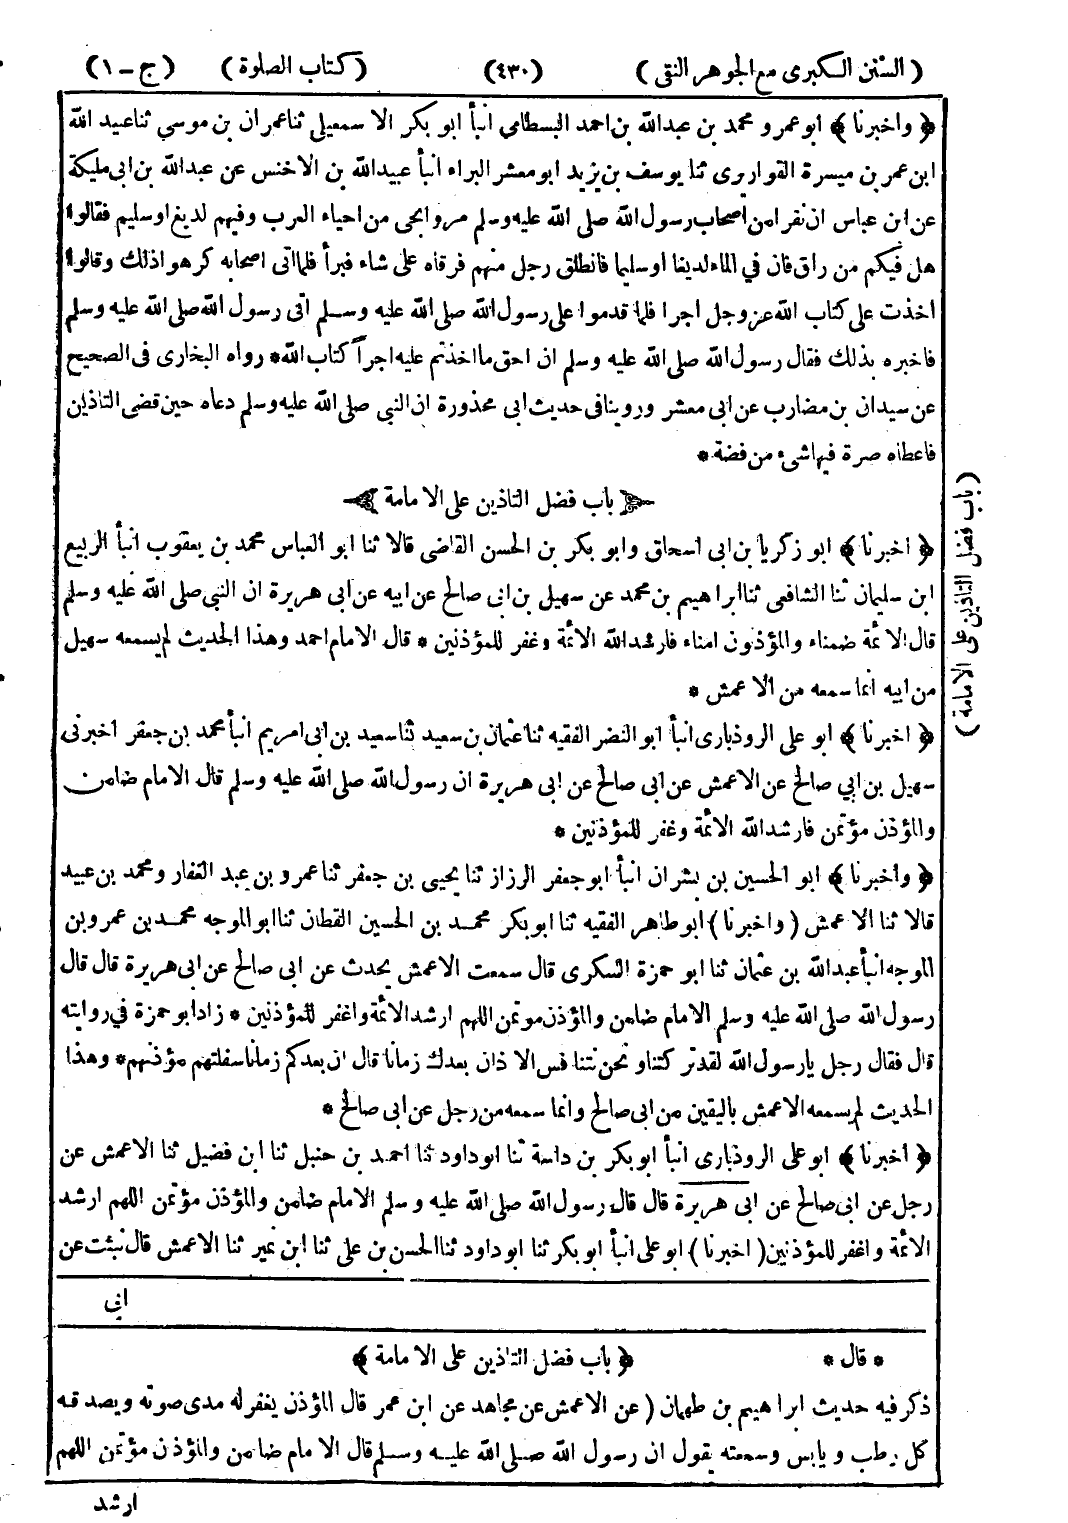 ( السنن الكبرى مع الجوهر النقى ) (٤٣٠) ( كتاب الصلوة ) ( ج - ١ )
﴿ واخبرنا ﴾ ابو عمرو محمد بن عبدالله بن احمد البسطامى انبأ ابو بكر الاسمعيلى ثنا عمران بن موسى ثنا عبيد الله
ابن عمر بن ميسرة القواريرى ثنا يوسف بن يزيد ابو معشر البراء انبأ عبيدالله بن الاخنس عن عبدالله بن ابى مليكة
عن ابن عباس ان نفرا من اصحاب رسول الله صلى الله عليه وسلم مروا بحى من احياء العرب وفيهم لديغ او سليم فقالوا
هل فيكم من راق فان في الماء لديغا او سليما فانطلق رجل منهم فرقاه على شاء فبرأ فلما اتى اصحابه كرهوا ذلك وقالوا
اخذت على كتاب الله عزوجل اجرا فلما قدموا على رسول الله صلى الله عليه وسلم اتى رسول الله صلى الله عليه وسلم
فاخبره بذلك فقال رسول الله صلى الله عليه وسلم ان احق ما اخذتم عليه اجراً كتاب الله * رواه البخارى فى الصحيح
عن سيدان بن مضارب عن ابى معشر وروينا فى حديث ابى محذورة ان النبى صلى الله عليه وسلم دعاه حين قضى التاذين
فاعطاه صرة فيها شىء من فضة *
باب فضل التاذين على الامامة
﴿ اخبرنا ﴾ ابو زكريا بن ابى اسحاق وابو بكر بن الحسن القاضى قالا ثنا ابو العباس محمد بن يعقوب انبأ الربيع
ابن سليمان ثنا الشافعى ثنا ابراهيم بن محمد عن سهيل بن ابى صالح عن ابيه عن ابى هريرة ان النبى صلى الله عليه وسلم
قال الائمة ضمناء والمؤذنون امناء فارشد الله الائمة وغفر للمؤذنين * قال الامام احمد وهذا الحديث لم يسمعه سهيل
من ابيه انما سمعه من الاعمش *
﴿ اخبرنا ﴾ ابو على الروذبارى انبأ ابو النضر الفقيه ثنا عثمان بن سعيد ثنا سعيد بن ابى مريم انبأ محمد بن جعفر اخبرنى
سهيل بن ابي صالح عن الاعمش عن ابى صالح عن ابى هريرة ان رسول الله صلى الله عليه وسلم قال الامام ضامن
والمؤذن مؤتمن فارشد الله الائمة وغفر للمؤذنين *
﴿ واخبرنا ﴾ ابو الحسين بن بشران انبأ ابو جعفر الرزاز ثنا يحيى بن جعفر ثنا عمرو بن عبد الغفار ومحمد بن عبيد
قالا ثنا الاعمش ( واخبرنا ) ابو طاهر الفقيه ثنا ابو بكر محمد بن الحسين القطان ثنا ابو الموجه محمد بن عمرو بن
الموجه انبأ عبدالله بن عثمان ثنا ابو حمزة السكرى قال سمعت الاعمش يحدث عن ابى صالح عن ابى هريرة قال قال
رسول الله صلى الله عليه وسلم الامام ضامن والمؤذن موتمن اللهم ارشد الائمة واغفر للمؤذنين * زاد ابو حمزة في روايته
قال فقال رجل يا رسول الله لقد تركتنا ونحن نتنافس الاذان بعدك زمانا قال ان بعدكم زمانا سفلتهم مؤذنهم * وهذا
الحديث لم يسمعه الاعمش باليقين من ابى صالح وانما سمعه من رجل عن ابى صالح *
﴿ اخبرنا ﴾ ابو على الروذبارى انبأ ابو بكر بن داسة ثنا ابو داود ثنا احمد بن حنبل ثنا ابن فضيل ثنا الاعمش عن
رجل عن ابى صالح عن ابى هريرة قال قال رسول الله صلى الله عليه وسلم الامام ضامن والمؤذن مؤتمن اللهم ارشد
الائمة واغفر للمؤذنين ( اخبرنا ) ابو على انبأ ابو بكر ثنا ابو داود ثنا الحسن بن على ثنا ابن نمير ثنا الاعمش قال نبئت عن
ابى
* قال * ﴿ باب فضل التاذين على الامامة ﴾
ذكر فيه حديث ابراهيم بن طهمان ( عن الاعمش عن مجاهد عن ابن عمر قال المؤذن يغفر له مدى صوته ويصدقه
كل رطب ويابس وسمعته يقول ان رسول الله صلى الله عليه وسلم قال الامام ضامن والمؤذن مؤتمن اللهم
ارشد
( باب فضل التاذين على الامامة )